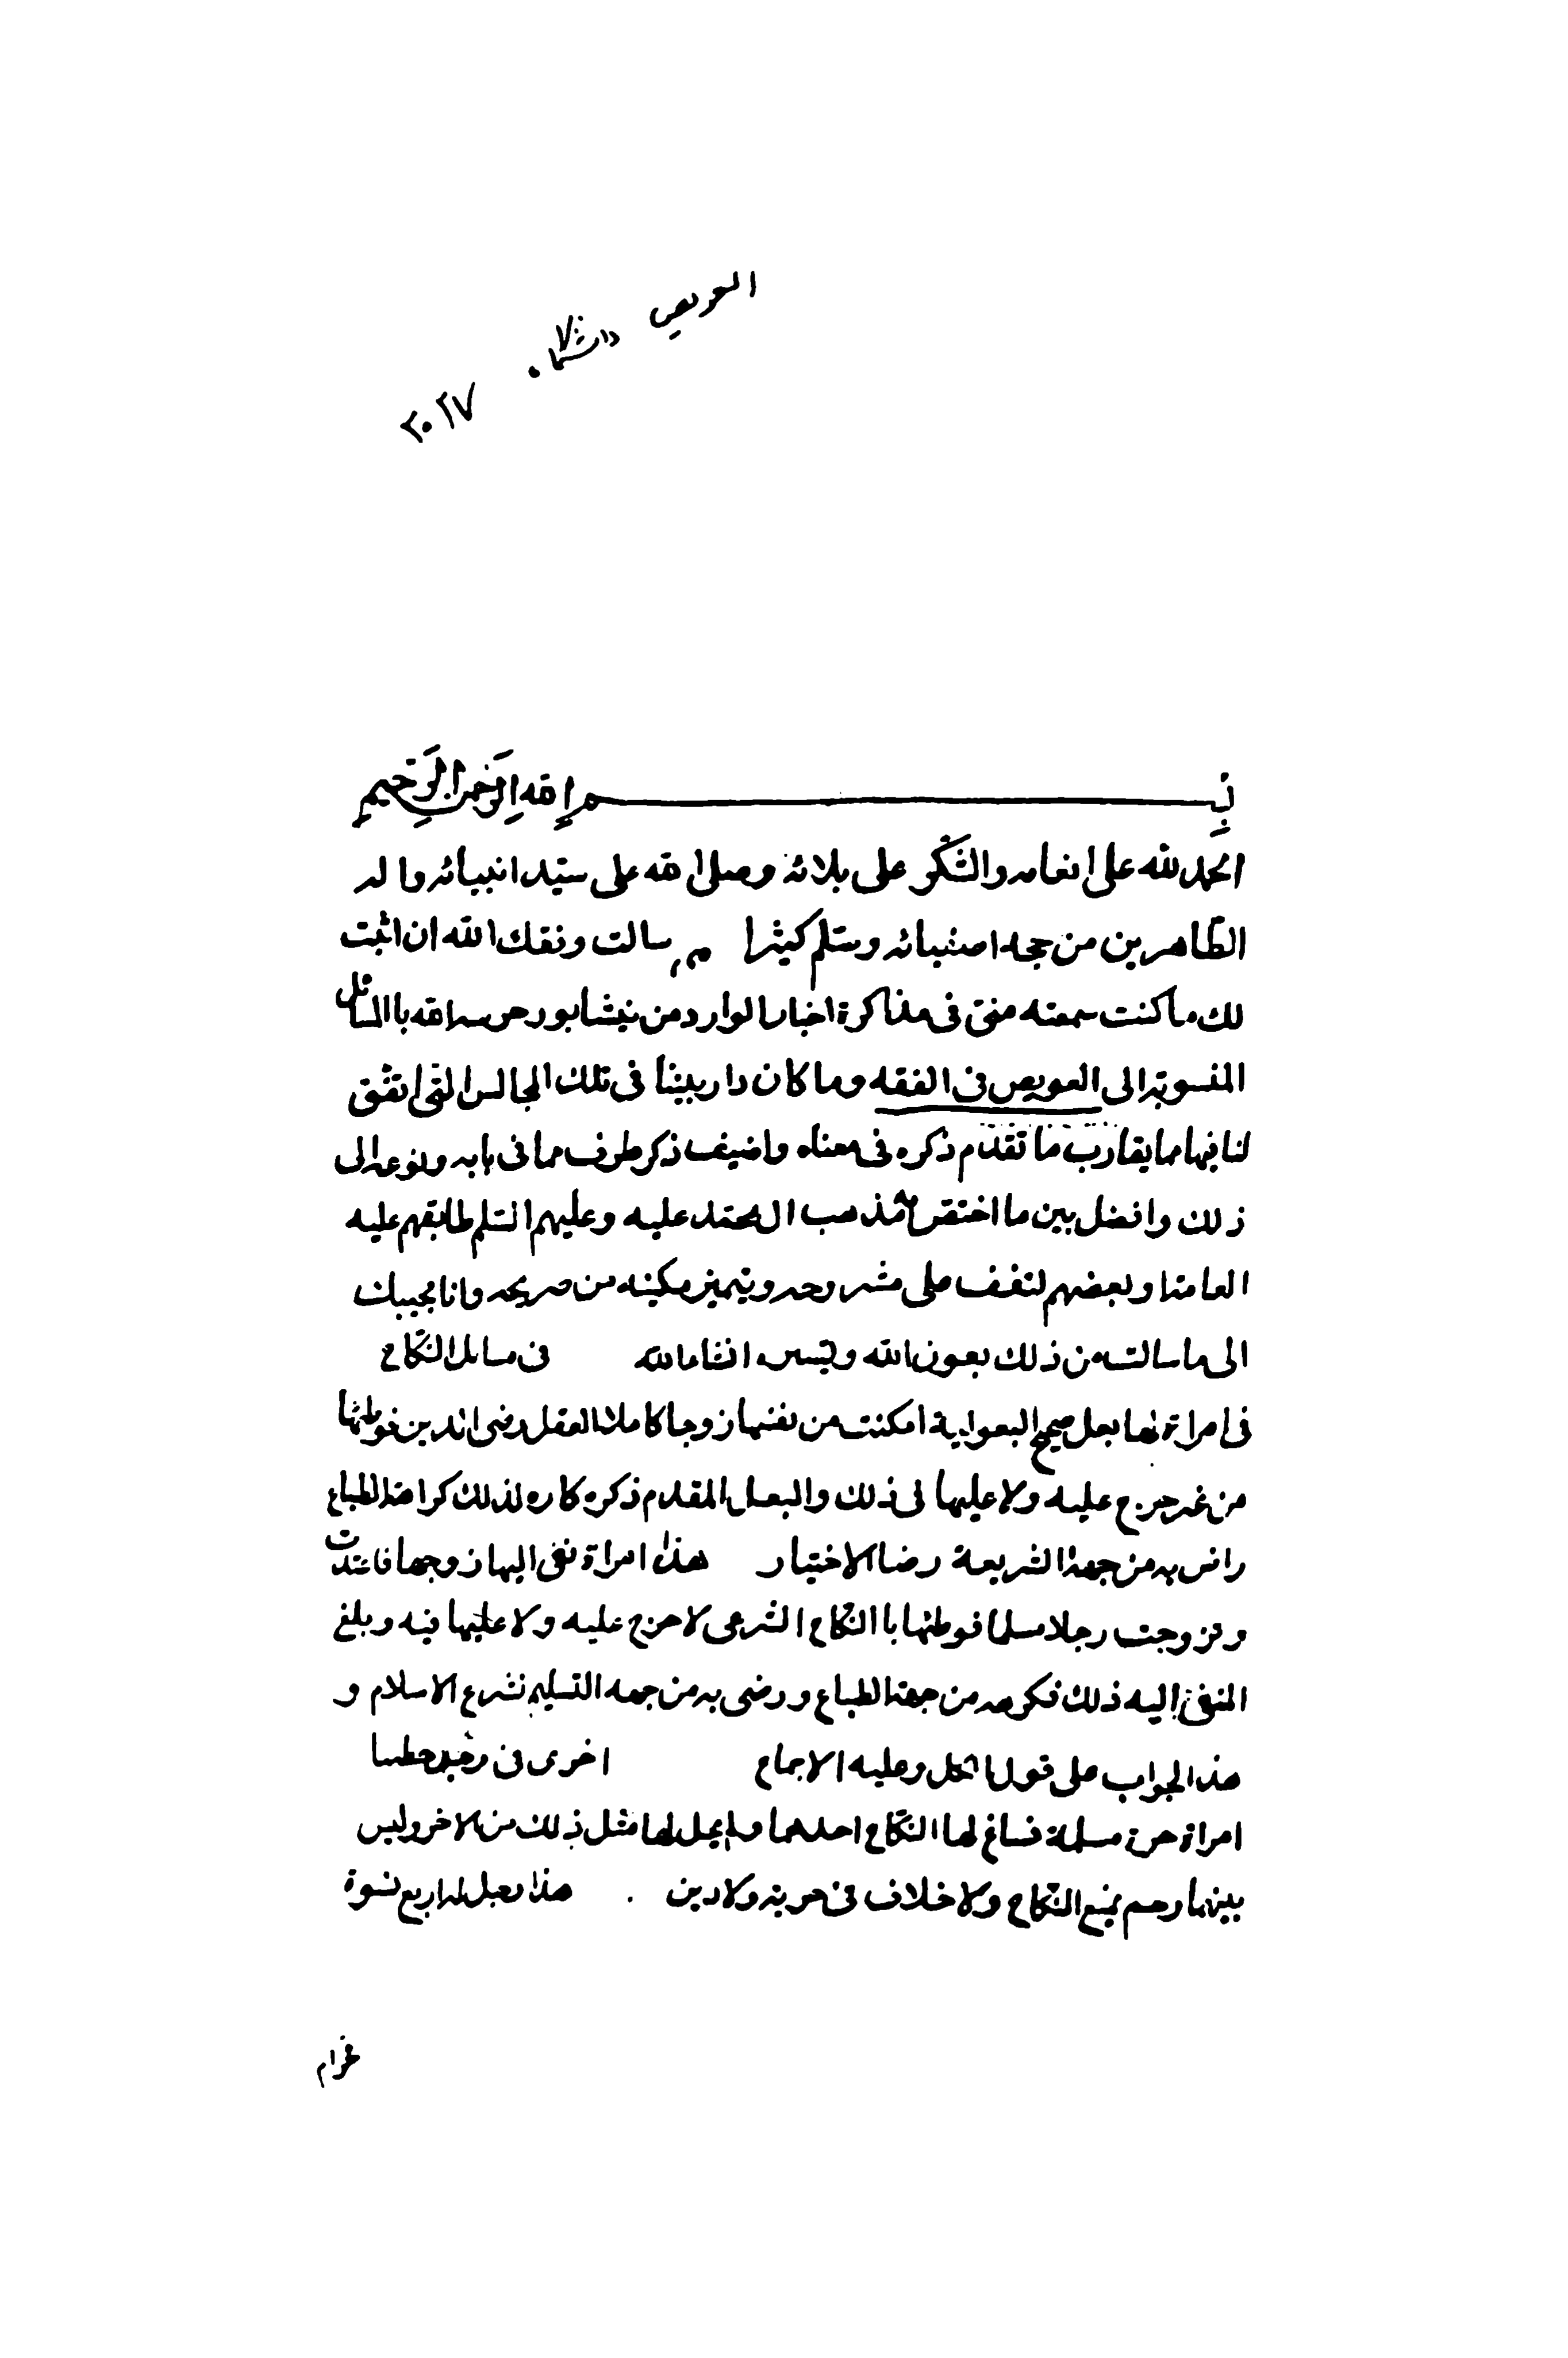 العويص دانشگاه ٢٠٢٧
بسم الله الرحمن الرحيم
الحمد لله على انعامه والشكر على بلائه وصلى الله على سيد انبيائه واله
الطاهرين من حججه اصفيائه وسلم كثيرا سالت وفقك الله ان اثبت
لك ما كنت سمعته منى فى مذاكرة اخبار الوارد من نيشابور حرسه الله با المسائل
المنسوبة الى العويص فى الفقه وما كان دار بيننا فى تلك المجالس التى اتفق
لنا فيها مما يقارب ما تقدم ذكره فى معناه واضيف ذكر طرف مما فى بابه ونوعه الى
ذلك وافضل بين ما اختص به مذهب ال محمد عليه وعليهم السلم طابقهم عليه
العامة او بعضهم لتقف على مشروحه ويتميز مكينه من صريحه وانا مجيبك
الى ما سالته من ذلك بعون الله انشاء الله فى مسائل النكاح
فى امراة لها بعل صحيح البعولية امكنت من نفسها زوجا كاملا العقل رضى الدين فوطئها
من غير حرج عليه ولا عليها فى ذلك والبعل المقدم ذكره كاره لذلك كراهة الطباع
راض به من جهة الشريعة رضا الاختيار هذه امراة نعى اليها زوجها فاعتدت
وتزوجت رجلا مسلما فوطئها با النكاح الشرعى لا حرج عليه ولا عليها فيه وبلغ
المنعى اليه ذلك فكرهه من جهة الطباع ورضى به من جهه التسليم لشرع الاسلام و
هذا الجواب على قول الكل وعليه الاجماع اخرى فى رجلين خطبا
امراة حرة مسلمة فساغ لها النكاح احدهما ولم يحل لها مثل ذلك من الاخر وليس
بينهما رحم يمنع النكاح ولا خلاف فى حرية ولا دين هذا رجل له اربع نسوة